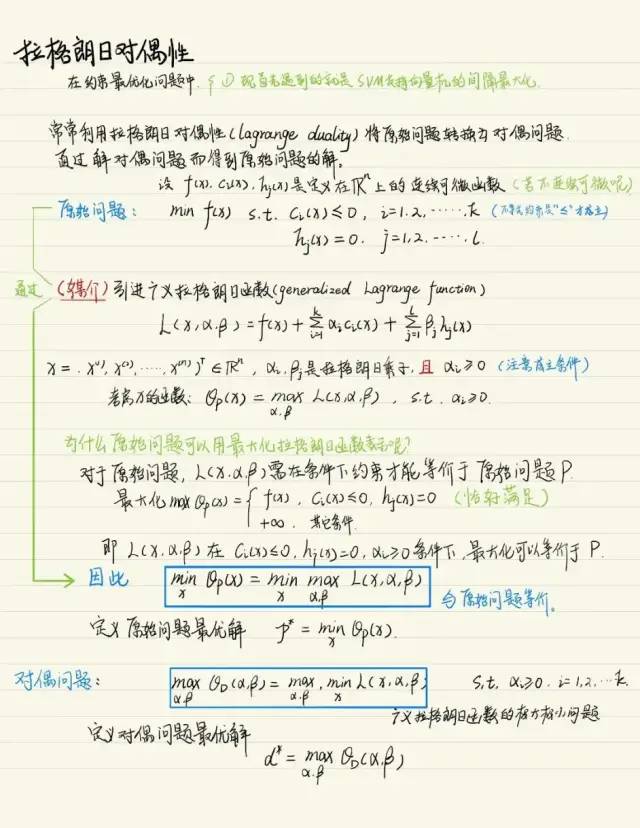 拉格朗日对偶性
在约束最优化问题中, ① 现首先遇到的就是SVM支持向量机的间隔最大化.
常常利用拉格朗日对偶性(Lagrange duality)将原始问题转换为对偶问题.
通过解对偶问题而得到原始问题的解。
设 f(x), ci(x), hj(x)是定义在ℝⁿ上的连续可微函数(若不连续可微呢)
原始问题: min f(x) s.t. ci(x)≤0, i=1.2,······k (不等式约束是"≤"才成立)
hj(x)=0. j=1,2,·····l.
通过 (媒介) 引进广义拉格朗日函数(generalized Lagrange function)
L(x,α,β) = f(x) + Σ_{i=1}^{k} αi ci(x) + Σ_{j=1}^{l} βj hj(x)
x = . x⁽¹⁾, x⁽²⁾, ·····, x⁽ⁿ⁾)ᵀ ∈ ℝⁿ, αi, βj是拉格朗日乘子, 且 αi≥0 (注意成立条件)
考虑x的函数: θp(x) = max_{α,β} L(x,α,β), s.t. αi≥0.
为什么原始问题可以用最大化拉格朗日函数表示呢?
对于原始问题, L(x.α,β)需在条件下约束才能等价于原始问题P.
最大化 max θp(x) = { f(x), ci(x)≤0, hj(x)=0 (恰好满足)
+∞. 其它条件.
即 L(x,α,β) 在 ci(x)≤0, hj(x)=0, αi≥0条件下, 最大化可以等价于 P.
因此 min_x θp(x) = min_x max_{α,β} L(x,α,β) 与原始问题等价。
定义原始问题最优解 p* = min_x θp(x).
对偶问题: max_{α,β} θD(α,β) = max_{α,β}, min_x L(x,α,β) s.t. αi≥0. i=1,2,···k.
广义拉格朗日函数的极大极小问题
定义对偶问题最优解
d* = max_{α,β} θD(α,β)